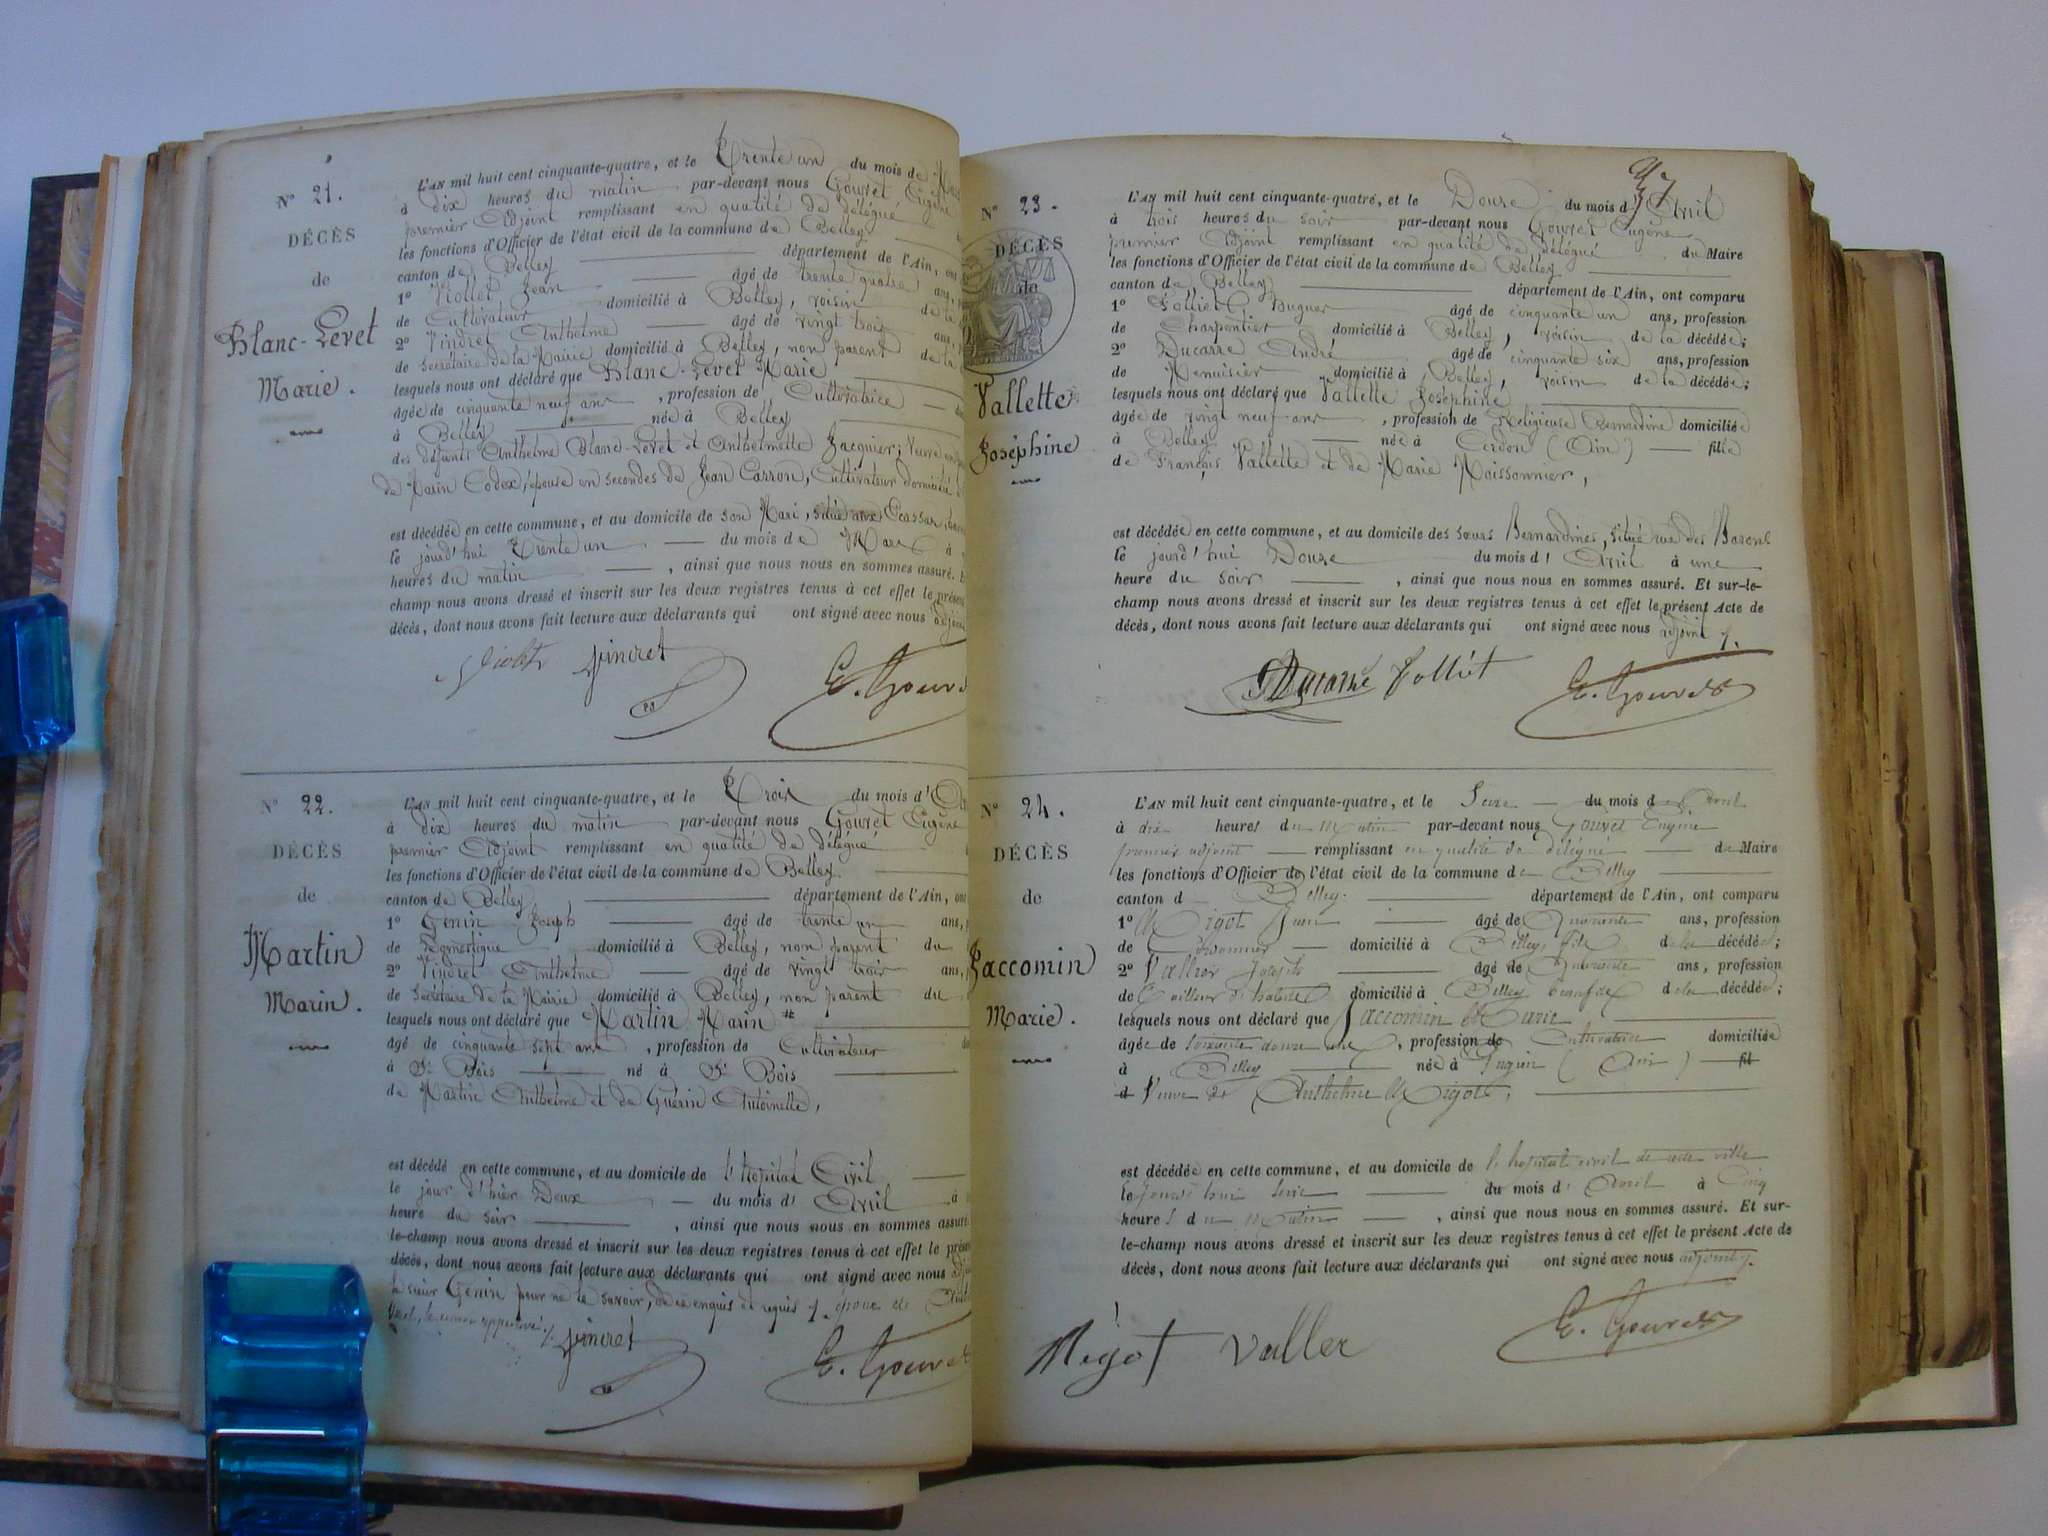 N° 21.
DÉCÈS
de
Blanc-Levet
Marie.
L'AN mil huit cent cinquante-quatre, et le Trente un du mois de
à dix heures du matin par-devant nous Gouvet Eugène
premier Adjoint remplissant en qualité de délégué
les fonctions d'Officier de l'état civil de la commune de Belley
canton de Belley département de l'Ain, ont
1° Viollet Jean âgé de trente quatre ans,
de Cultivateur domicilié à Belley, voisin de la
2° Vindret Anthelme âgé de vingt trois ans,
de Secrétaire de la Mairie domicilié à Belley, non parent de la
lesquels nous ont déclaré que Blanc-Levet Marie
âgée de cinquante neuf ans, profession de Cultivatrice
à Belley née à Belley
des défunts Anthelme Blanc-Levet et Anthelmette Jacquier; Veuve en
de Marin Codex, épouse en secondes de Jean Carron, Cultivateur domicilié
est décédée en cette commune, et au domicile de son Mari,
le jourd'hui Trente un du mois de Mars à
heures du matin, ainsi que nous nous en sommes assuré.
champ nous avons dressé et inscrit sur les deux registres tenus à cet effet le présent
décès, dont nous avons fait lecture aux déclarants qui ont signé avec nous
Violet Vindret E. Gouvet
N° 22.
DÉCÈS
de
Martin
Marin.
L'AN mil huit cent cinquante-quatre, et le Trois du mois d'
à dix heures du matin par-devant nous Gouvet Eugène
premier Adjoint remplissant en qualité de délégué
les fonctions d'Officier de l'état civil de la commune de Belley
canton de Belley département de l'Ain, ont
1° Genin Joseph âgé de trente un ans,
de Domestique domicilié à Belley, non parent du
2° Vindret Anthelme âgé de vingt trois ans,
de Secrétaire de la Mairie domicilié à Belley, non parent du
lesquels nous ont déclaré que Martin Marin
âgé de cinquante sept ans, profession de Cultivateur
à St Bois né à St Bois
de Martin Anthelme et de Guérin Antoinette,
est décédé en cette commune, et au domicile de l'Hôpital Civil
le jour d'hier Deux du mois d' Avril à
heure du soir, ainsi que nous nous en sommes assuré
le-champ nous avons dressé et inscrit sur les deux registres tenus à cet effet le
décès, dont nous avons fait lecture aux déclarants qui ont signé avec nous
le sieur Genin pour ne le savoir, de ce enquis et requis ./. époux de
Vindret E. Gouvet
97
N° 23.
DÉCÈS
de
Vallette
Joséphine
L'AN mil huit cent cinquante-quatre, et le Douze du mois d' Avril
à trois heures du soir par-devant nous Gouvet Eugène
premier Adjoint remplissant en qualité de délégué du Maire
les fonctions d'Officier de l'état civil de la commune de Belley
canton de Belley département de l'Ain, ont comparu
1° Folliet Hugues âgé de cinquante un ans, profession
de Charpentier domicilié à Belley, voisin de la décédée;
2° Ducarre André âgé de cinquante six ans, profession
de Menuisier domicilié à Belley, voisin de la décédée;
lesquels nous ont déclaré que Vallette Joséphine
âgée de vingt neuf ans, profession de Religieuse Bernardine domiciliée
à Belley née à Cerdon (Ain) fille
de François Vallette et de Marie Moissonnier,
est décédée en cette commune, et au domicile des sœurs Bernardines, situé rue des Barons
le jourd'hui Douze du mois d' Avril à une
heure du soir, ainsi que nous nous en sommes assuré. Et sur-le-
champ nous avons dressé et inscrit sur les deux registres tenus à cet effet le présent Acte de
décès, dont nous avons fait lecture aux déclarants qui ont signé avec nous adjoint ./.
Ducarre Folliet E. Gouvet
N° 24.
DÉCÈS
de
Jaccomin
Marie.
L'AN mil huit cent cinquante-quatre, et le Seize du mois d' Avril
à dix heures du Matin par-devant nous Gouvet Eugène
premier adjoint remplissant en qualité de délégué du Maire
les fonctions d'Officier de l'état civil de la commune de Belley
canton d Belley département de l'Ain, ont comparu
1° Migot Jean âgé de Quarante ans, profession
de domicilié à Belley, fils de la décédée;
2° Vallier Joseph âgé de Quarante ans, profession
de Tailleur d'habits domicilié à Belley beaufils de la décédée;
lesquels nous ont déclaré que Jaccomin Marie
âgée de soixante douze ans, profession de Cultivatrice domiciliée
à Belley née à Pugieu (Ain) fil
d Veuve de Anthelme Migot,
est décédée en cette commune, et au domicile de l'hopital civil de cette ville
le jourd'hui Seize du mois d' Avril à Cinq
heures du Matin, ainsi que nous nous en sommes assuré. Et sur-
le-champ nous avons dressé et inscrit sur les deux registres tenus à cet effet le présent Acte de
décès, dont nous avons fait lecture aux déclarants qui ont signé avec nous adjoint ./.
Migot Valler E. Gouvet